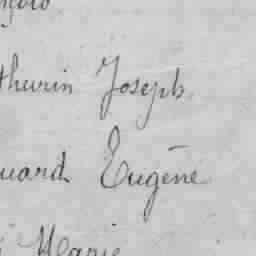 thurin Joseph
uard Eugène
Marie